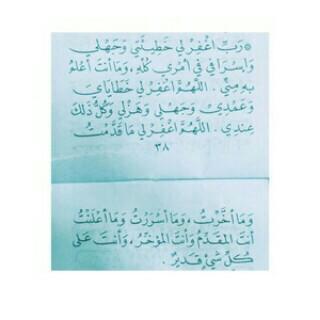 رَبِّ اغْفِرْ لِي خَطِيئَتِي وَجَهْلِي
وَإِسْرَافِي فِي أَمْرِي كُلِّهِ ، وَمَا أَنْتَ أَعْلَمُ
بِهِ مِنِّي . اللَّهُمَّ اغْفِرْ لِي خَطَايَايَ
وَعَمْدِي وَجَهْلِي وَهَزْلِي وَكُلُّ ذَلِكَ
عِنْدِي . اللَّهُمَّ اغْفِرْ لِي مَا قَدَّمْتُ
٣٨
وَمَا أَخَّرْتُ ، وَمَا أَسْرَرْتُ وَمَا أَعْلَنْتُ
أَنْتَ الْمُقَدِّمُ وَأَنْتَ الْمُؤَخِّرُ ، وَأَنْتَ عَلَى
كُلِّ شَيْءٍ قَدِيرٌ .